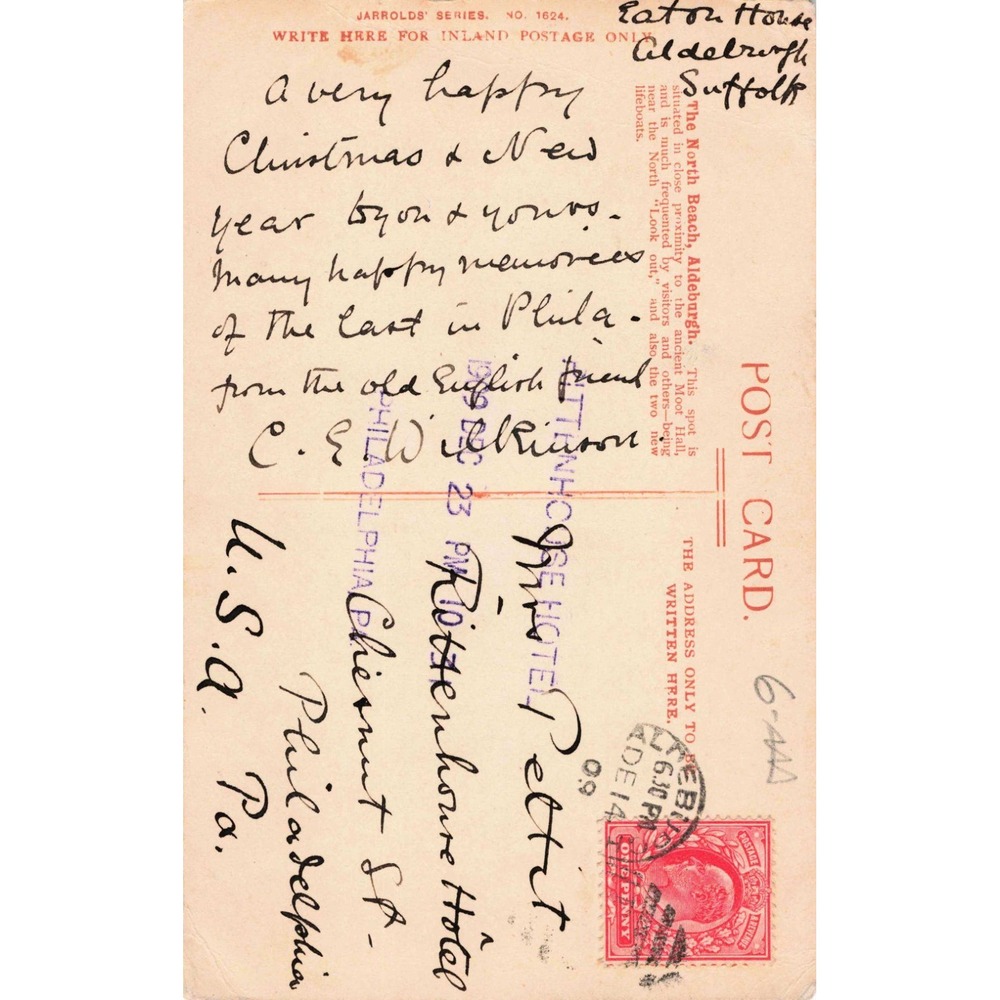 JARROLDS' SERIES. NO. 1624.
WRITE HERE FOR INLAND POSTAGE ONLY
Eaton House
Aldeburgh
Suffolk
A very happy
Christmas & New
year to you & yours.
Many happy memories
of the last in Phila.
from the old English friend
C. E. Wilkinson.
The North Beach, Aldeburgh. This spot is
situated in close proximity to the ancient Moot Hall,
and is much frequented by visitors and others—being
near the North "Look out," and also the two new
lifeboats.
POST CARD.
THE ADDRESS ONLY TO BE
WRITTEN HERE.
6-AAA
Mrs Pettit
Rittenhouse Hotel
Chesnut St-
Philadelphia
Pa.
U.S.A.
RITTENHOUSE HOTEL
1909 DEC 23 PM 10
PHILADELPHIA, PA
ALDEBU
6.30 PM
DE 14
09
POSTAGE
REVENUE
ONE PENNY